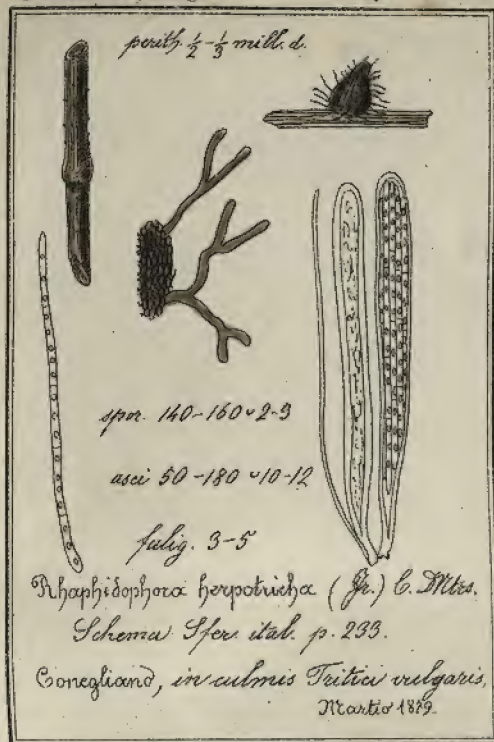 perith. ½-⅓ mill. d.
spor. 140-160 ᵕ 2-3
asci 50-180 ᵕ 10-12
fulig. 3-5
Rhaphidophora herpotricha (Fr.) C. Dntrs.
Schema Sfer. ital. p. 233.
Conegliano, in culmis Tritici vulgaris,
Martio 1879.